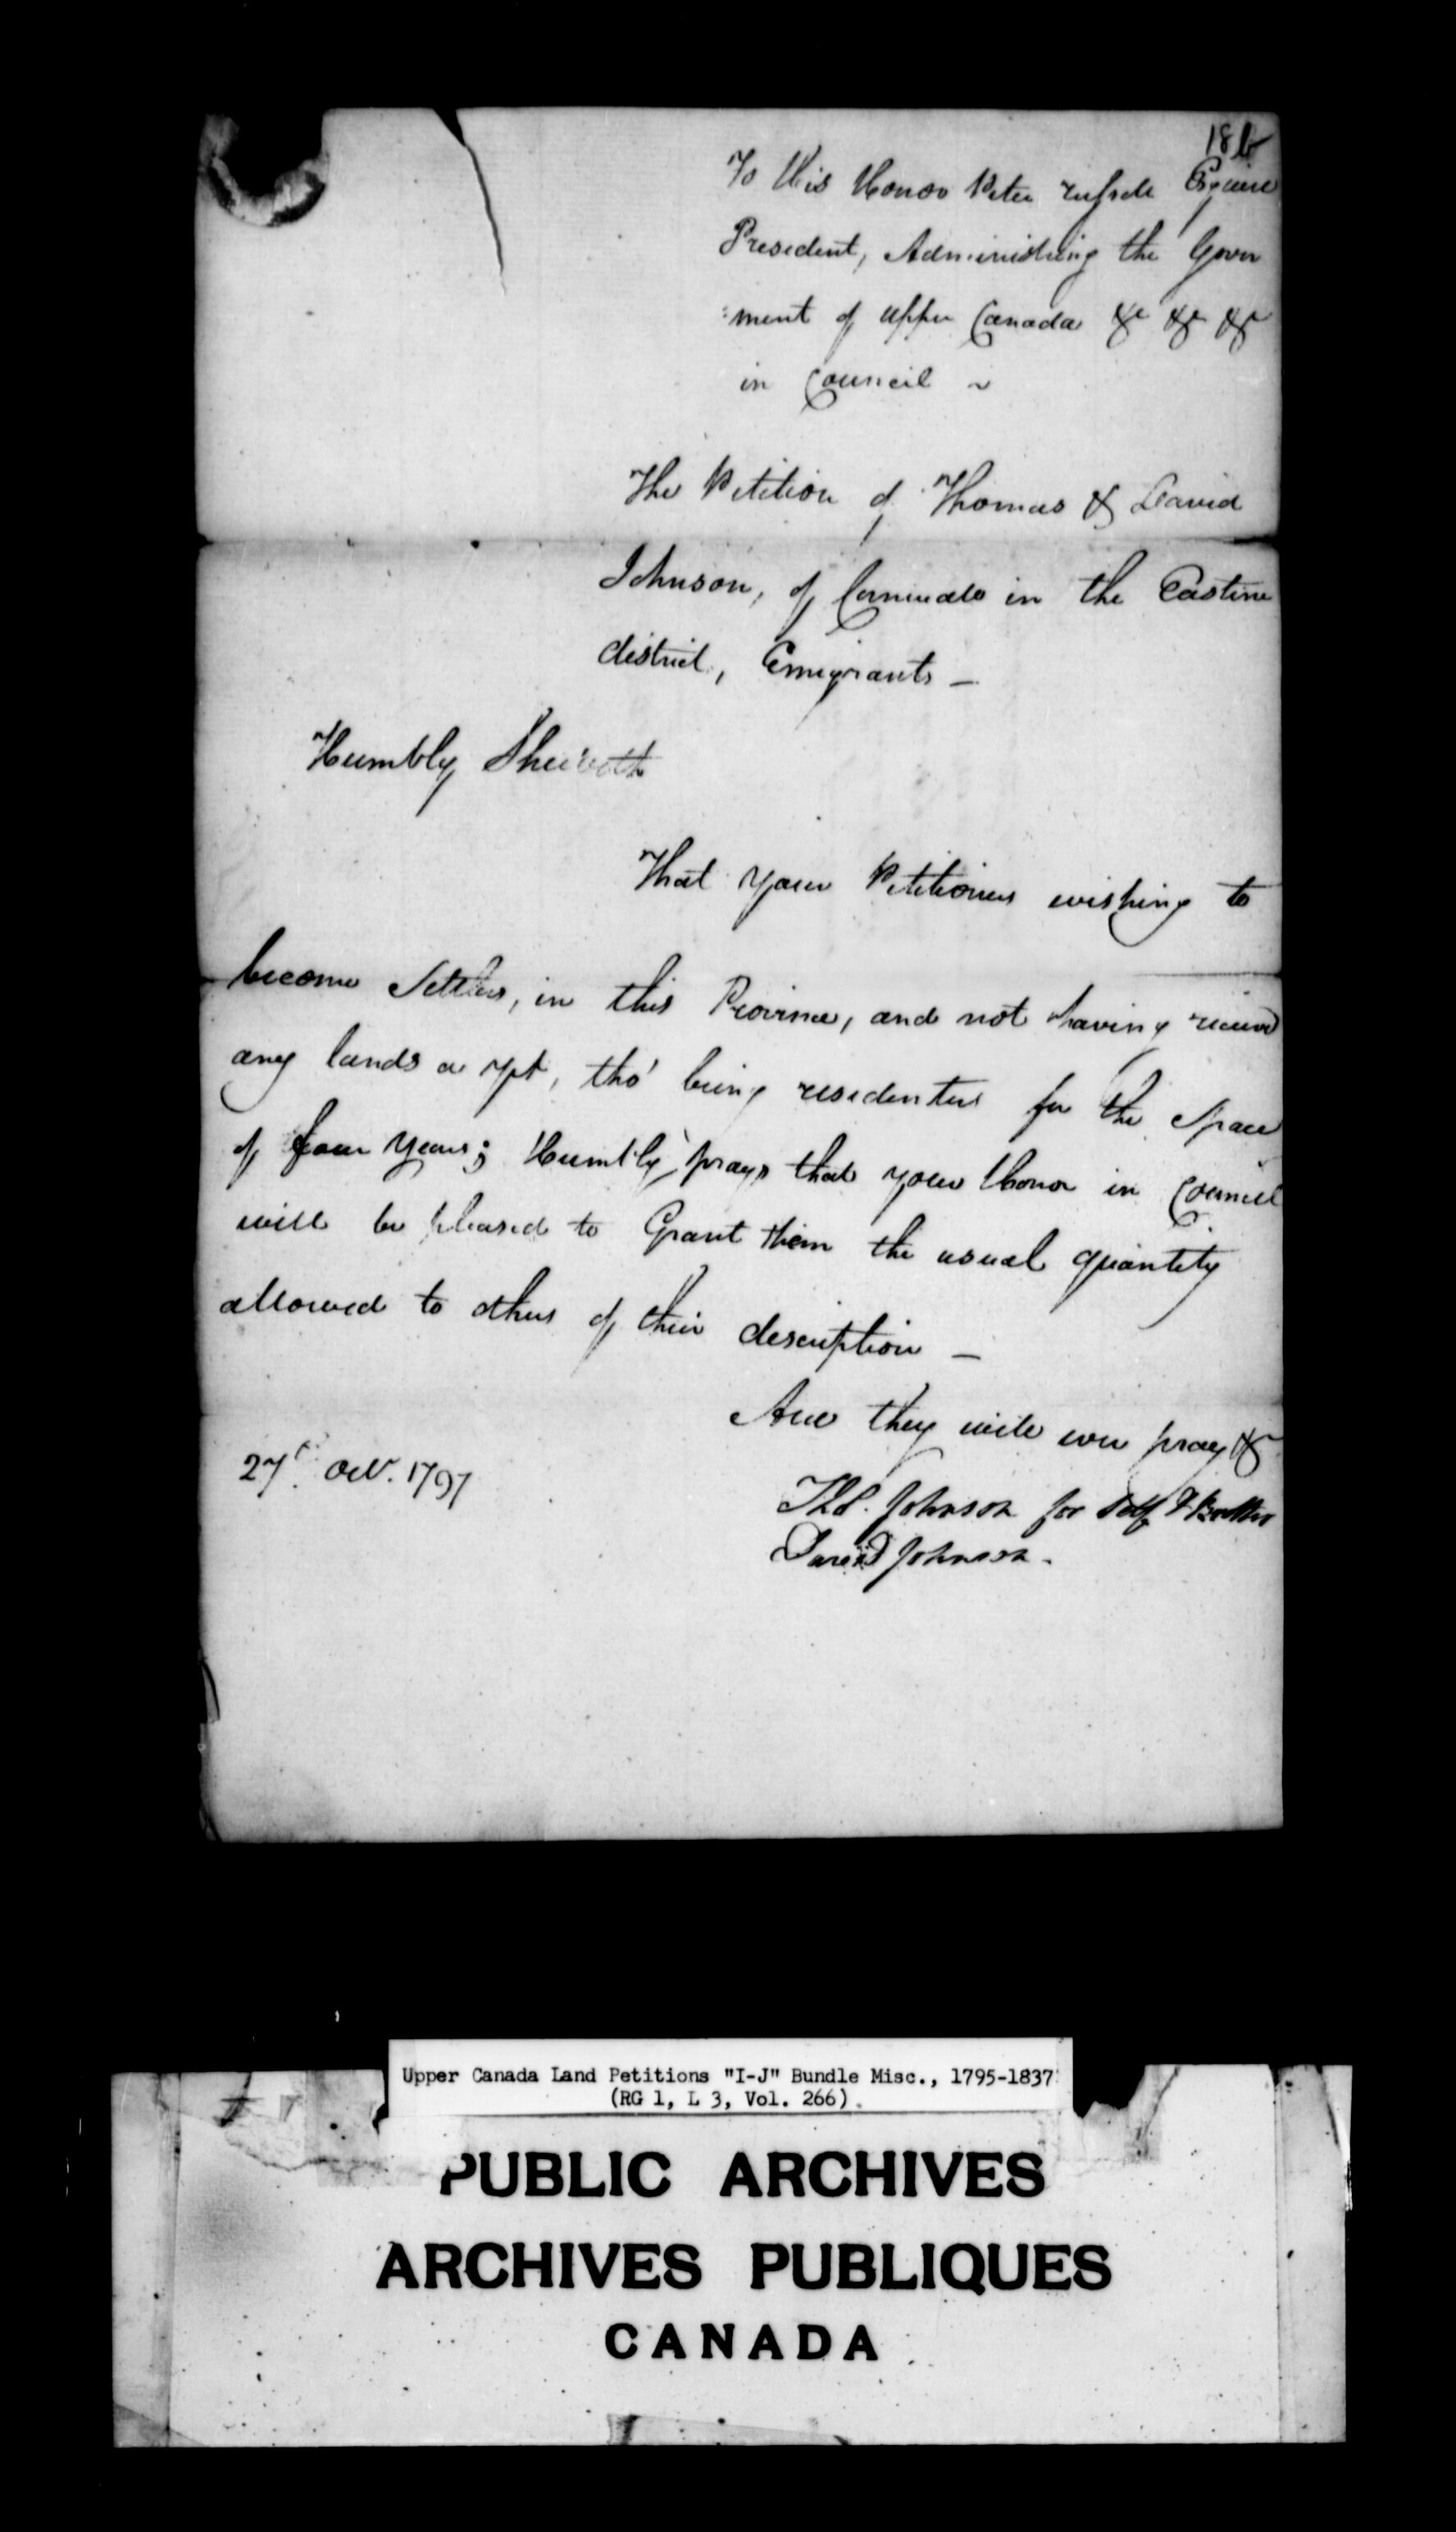 18b
To His Honor Peter Russell Esquire
President, Administring the Govern
:ment of upper Canada &c &c &c
in Council ~
The Petition of Thomas & David
Johnson, of Cornwall in the Eastern
district, Emigrants —
Humbly Sheweth
That your Petitioners wishing to
become Settlers, in this Province, and not having receivd
any lands as yet, tho' being residenters for the Space
of four Years; Humbly prays that your Honor in Council
will be pleased to Grant them the usual quantity
allowed to others of their description —
And they will ever pray &c
27th Octr. 1797
Thos. Johnson for Self & Brother
David Johnson.
Upper Canada Land Petitions "I-J" Bundle Misc., 1795-1837
(RG 1, L 3, Vol. 266)
PUBLIC ARCHIVES
ARCHIVES PUBLIQUES
CANADA